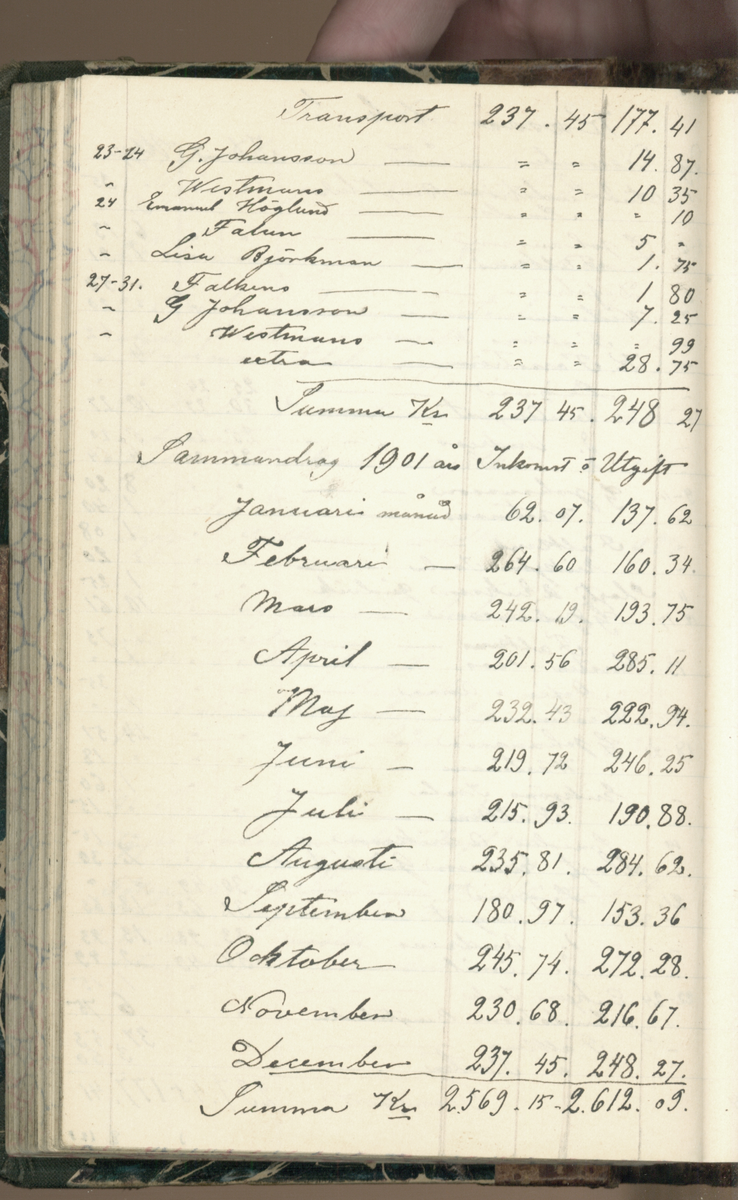 Transport 237. 45 177. 41
23-24 G. Johansson — " " 14. 87.
" Westmans — " " 10 35
24 Emanuel Höglund — " " " 10
" Falun — " " 5 "
" Lisa Björkman — " " 1. 75
27-31. Falkens — " " 1 80
" G Johansson — " " 7. 25
" Westmans — " " " 99
extra — " " 28. 75
Summa Kr 237 45. 248 27
Sammandrag 1901 års Inkomst o Utgift
Januari månad 62. 07. 137. 62
Februari — 264. 60 160. 34.
Mars — 242. 19. 193. 75
April — 201. 56 285. 11
Maj — 232. 43 222. 94.
Juni — 219. 72 246. 25
Juli — 215. 93. 190. 88.
Augusti 235. 81. 284. 62.
September 180. 97. 153. 36
Oktober 245. 74. 272. 28.
November 230. 68. 216. 67.
December 237. 45. 248. 27.
Summa Kr 2.569. 15- 2.612. 09.